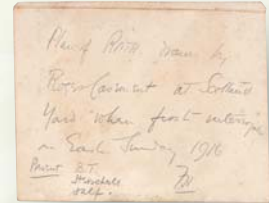 Plan of Route drawn by
Roger Casement at Scotland
Yard when first interviewed
on Easter Sunday 1916
Present B.T.
Self.